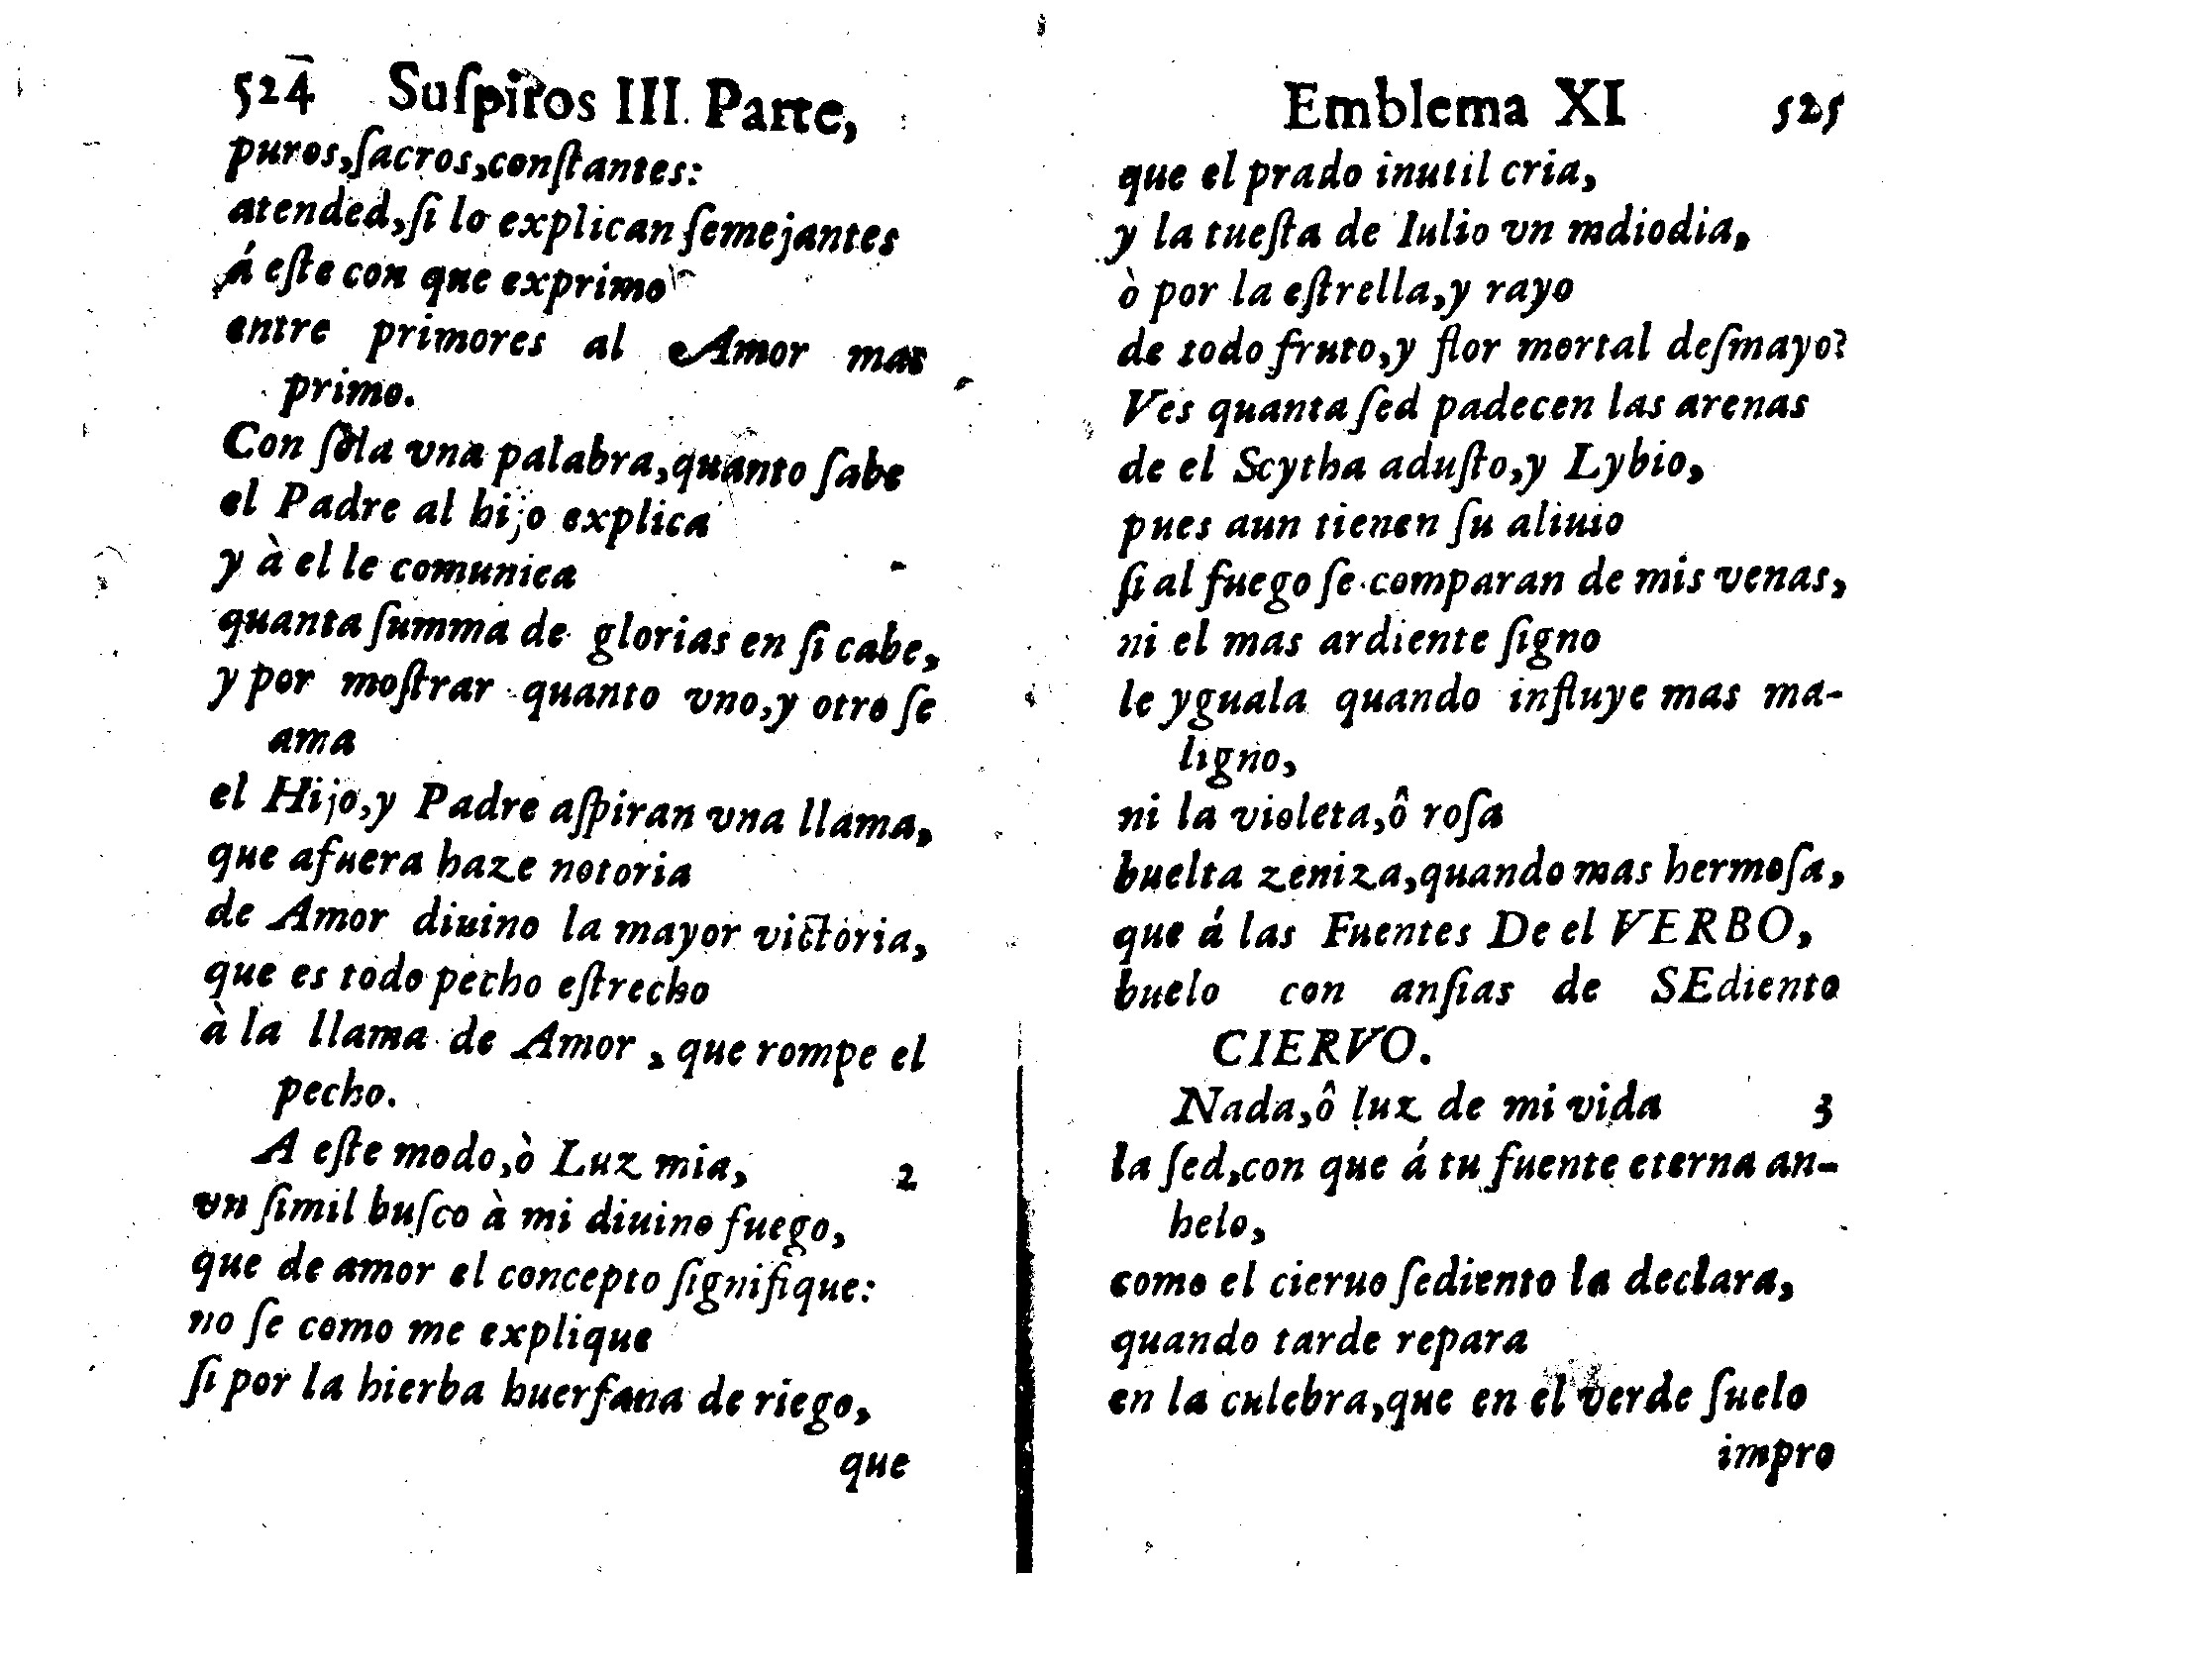 524 Suſpiros III. Parte,
puros,ſacros,conſtantes:
atended,ſi lo explican ſemejantes
á eſte con que exprimo
entre primores al Amor mas
primo.
Con ſola vna palabra,quanto ſabe
el Padre al hijo explica
y à el le comunica
quanta ſumma de glorias en ſi cabe,
y por moſtrar quanto vno,y otro ſe
ama
el Hijo,y Padre aſpiran vna llama,
que afuera haze notoria
de Amor diuino la mayor victoria,
que es todo pecho eſtrecho
à la llama de Amor, que rompe el
pecho.
A eſte modo,ò Luz mia, 2
vn ſimil buſco à mi diuino fuego,
que de amor el concepto ſignifique:
no ſe como me explique
ſi por la hierba huerfana de riego,
que
Emblema XI 525
que el prado inutil cria,
y la tueſta de Iulio vn mdiodia,
ò por la eſtrella,y rayo
de todo fruto,y flor mortal deſmayo?
Ves quanta ſed padecen las arenas
de el Scytha aduſto,y Lybio,
pues aun tienen ſu aliuio
ſi al fuego ſe comparan de mis venas,
ni el mas ardiente ſigno
le yguala quando influye mas ma-
ligno,
ni la violeta,ô roſa
buelta zeniza,quando mas hermoſa,
que á las Fuentes De el VERBO,
buelo con anſias de SEdiento
CIERVO.
Nada,ô luz de mi vida 3
la ſed,con que á tu fuente eterna an-
helo,
como el cieruo ſediento la declara,
quando tarde repara
en la culebra,que en el verde ſuelo
impro